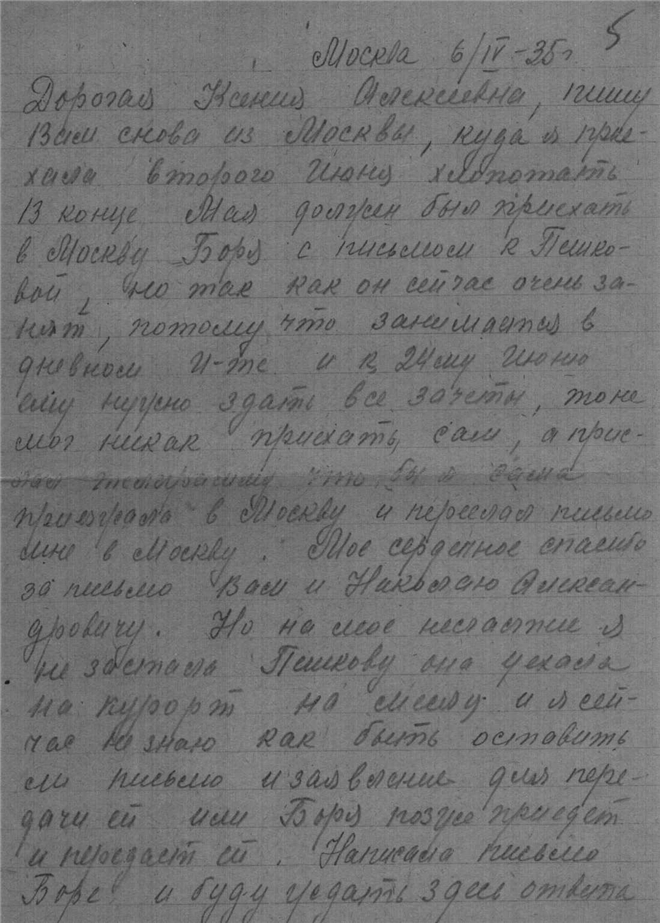 5
Москва 6/IV-35г
Дорогая Ксения Алексеевна, пишу
Вам снова из Москвы, куда я прие-
хала второго Июня хлопотать
В конце Мая должен был приехать
в Москву Боря с письмом к Пешко-
вой, но так как он сейчас очень за-
нят, потому что занимается в
дневном И-те и к 24му Июню
ему нужно здать все зачеты, то не
мог никак приехать сам, а прис-
лал телеграмму что бы я сама
приезжала в Москву и переслал письмо
мне в Москву. Мое сердечное спасибо
за письмо Вам и Николаю Алексан-
дровичу. Но на мое несчастие я
не застала Пешкову она уехала
на курорт на месяц и я сей-
час не знаю как быть оставить
ли письмо и заявление для пере-
дачи ей или Боря позже приедет
и передаст ей. Написала письмо
Боре и буду ждать здесь ответа